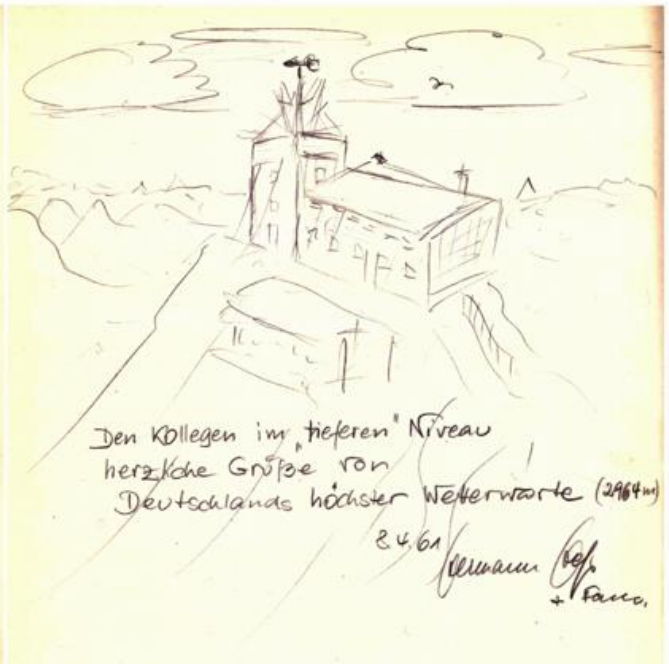 Den Kollegen im "tieferen" Niveau
herzliche Grüße von
Deutschlands höchster Wetterwarte (2964m)
8.4.61 Hermann
+ Fam.